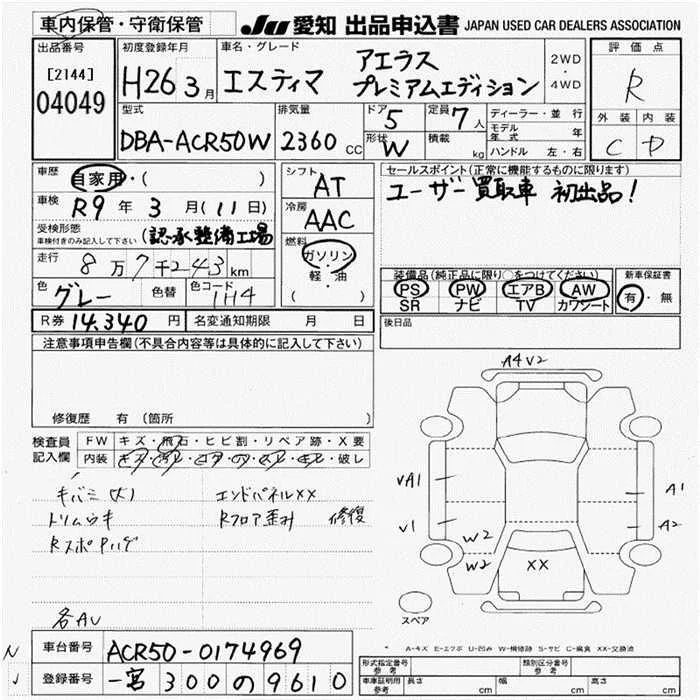 車内保管・守衛保管
JU 愛知 出品申込書 JAPAN USED CAR DEALERS ASSOCIATION
出品番号
[2144]
04049
初度登録年月
H26 3月
車名・グレード
エスティマ
アエラス
プレミアムエディション
2WD
・
4WD
評価点
R
外装 内装
C D
型式
DBA-ACR50W
排気量
2360 CC
ドア 5
形状 W
定員 7人
積載 kg
ディーラー・並行
モデル年式 年
ハンドル 左・右
車歴 自家用・( )
車検 R9年 3月(11日)
受検形態
車検付きのみ記入して下さい (認承整備工場
走行 8万7千243km
色 グレー 色替 色コード 1H4
シフト AT
冷房 AAC
燃料
ガソリン
・
軽・油
( )
R券 14.340円 名変通知期限 月 日
セールスポイント(正常に機能するものに限ります)
ユーザー買取車 初出品!
装備品(純正品に限り○をつけてください) 新車保証書
PS PW エアB AW 有・無
SR ナビ TV カワシート
後日品
注意事項申告欄(不具合内容等は具体的に記入して下さい)
修復歴 有 (箇所 )
検査員記入欄
FW キズ・飛石・ヒビ割・リペア跡・X要
内装 キズ・汚レ・コゲ・穴・スレ・キレ・破レ
キバミ 大)
トリムウキ
RスポPハゲ
エンドパネルXX
Rフロア歪み 修復
各AU
A4V2
VA1
V1
W2
W2
XX
A1
A2
スペア
A-キズ E-エクボ U-凹み W-補修跡 S-サビ C-腐食 XX-交換済
車台番号 ACR50-0174969
登録番号 一宮 300 の 9610
形式指定番号 参考 類別区分番号 参考
車庫証明用 参考 長さ cm 幅 cm 高さ cm